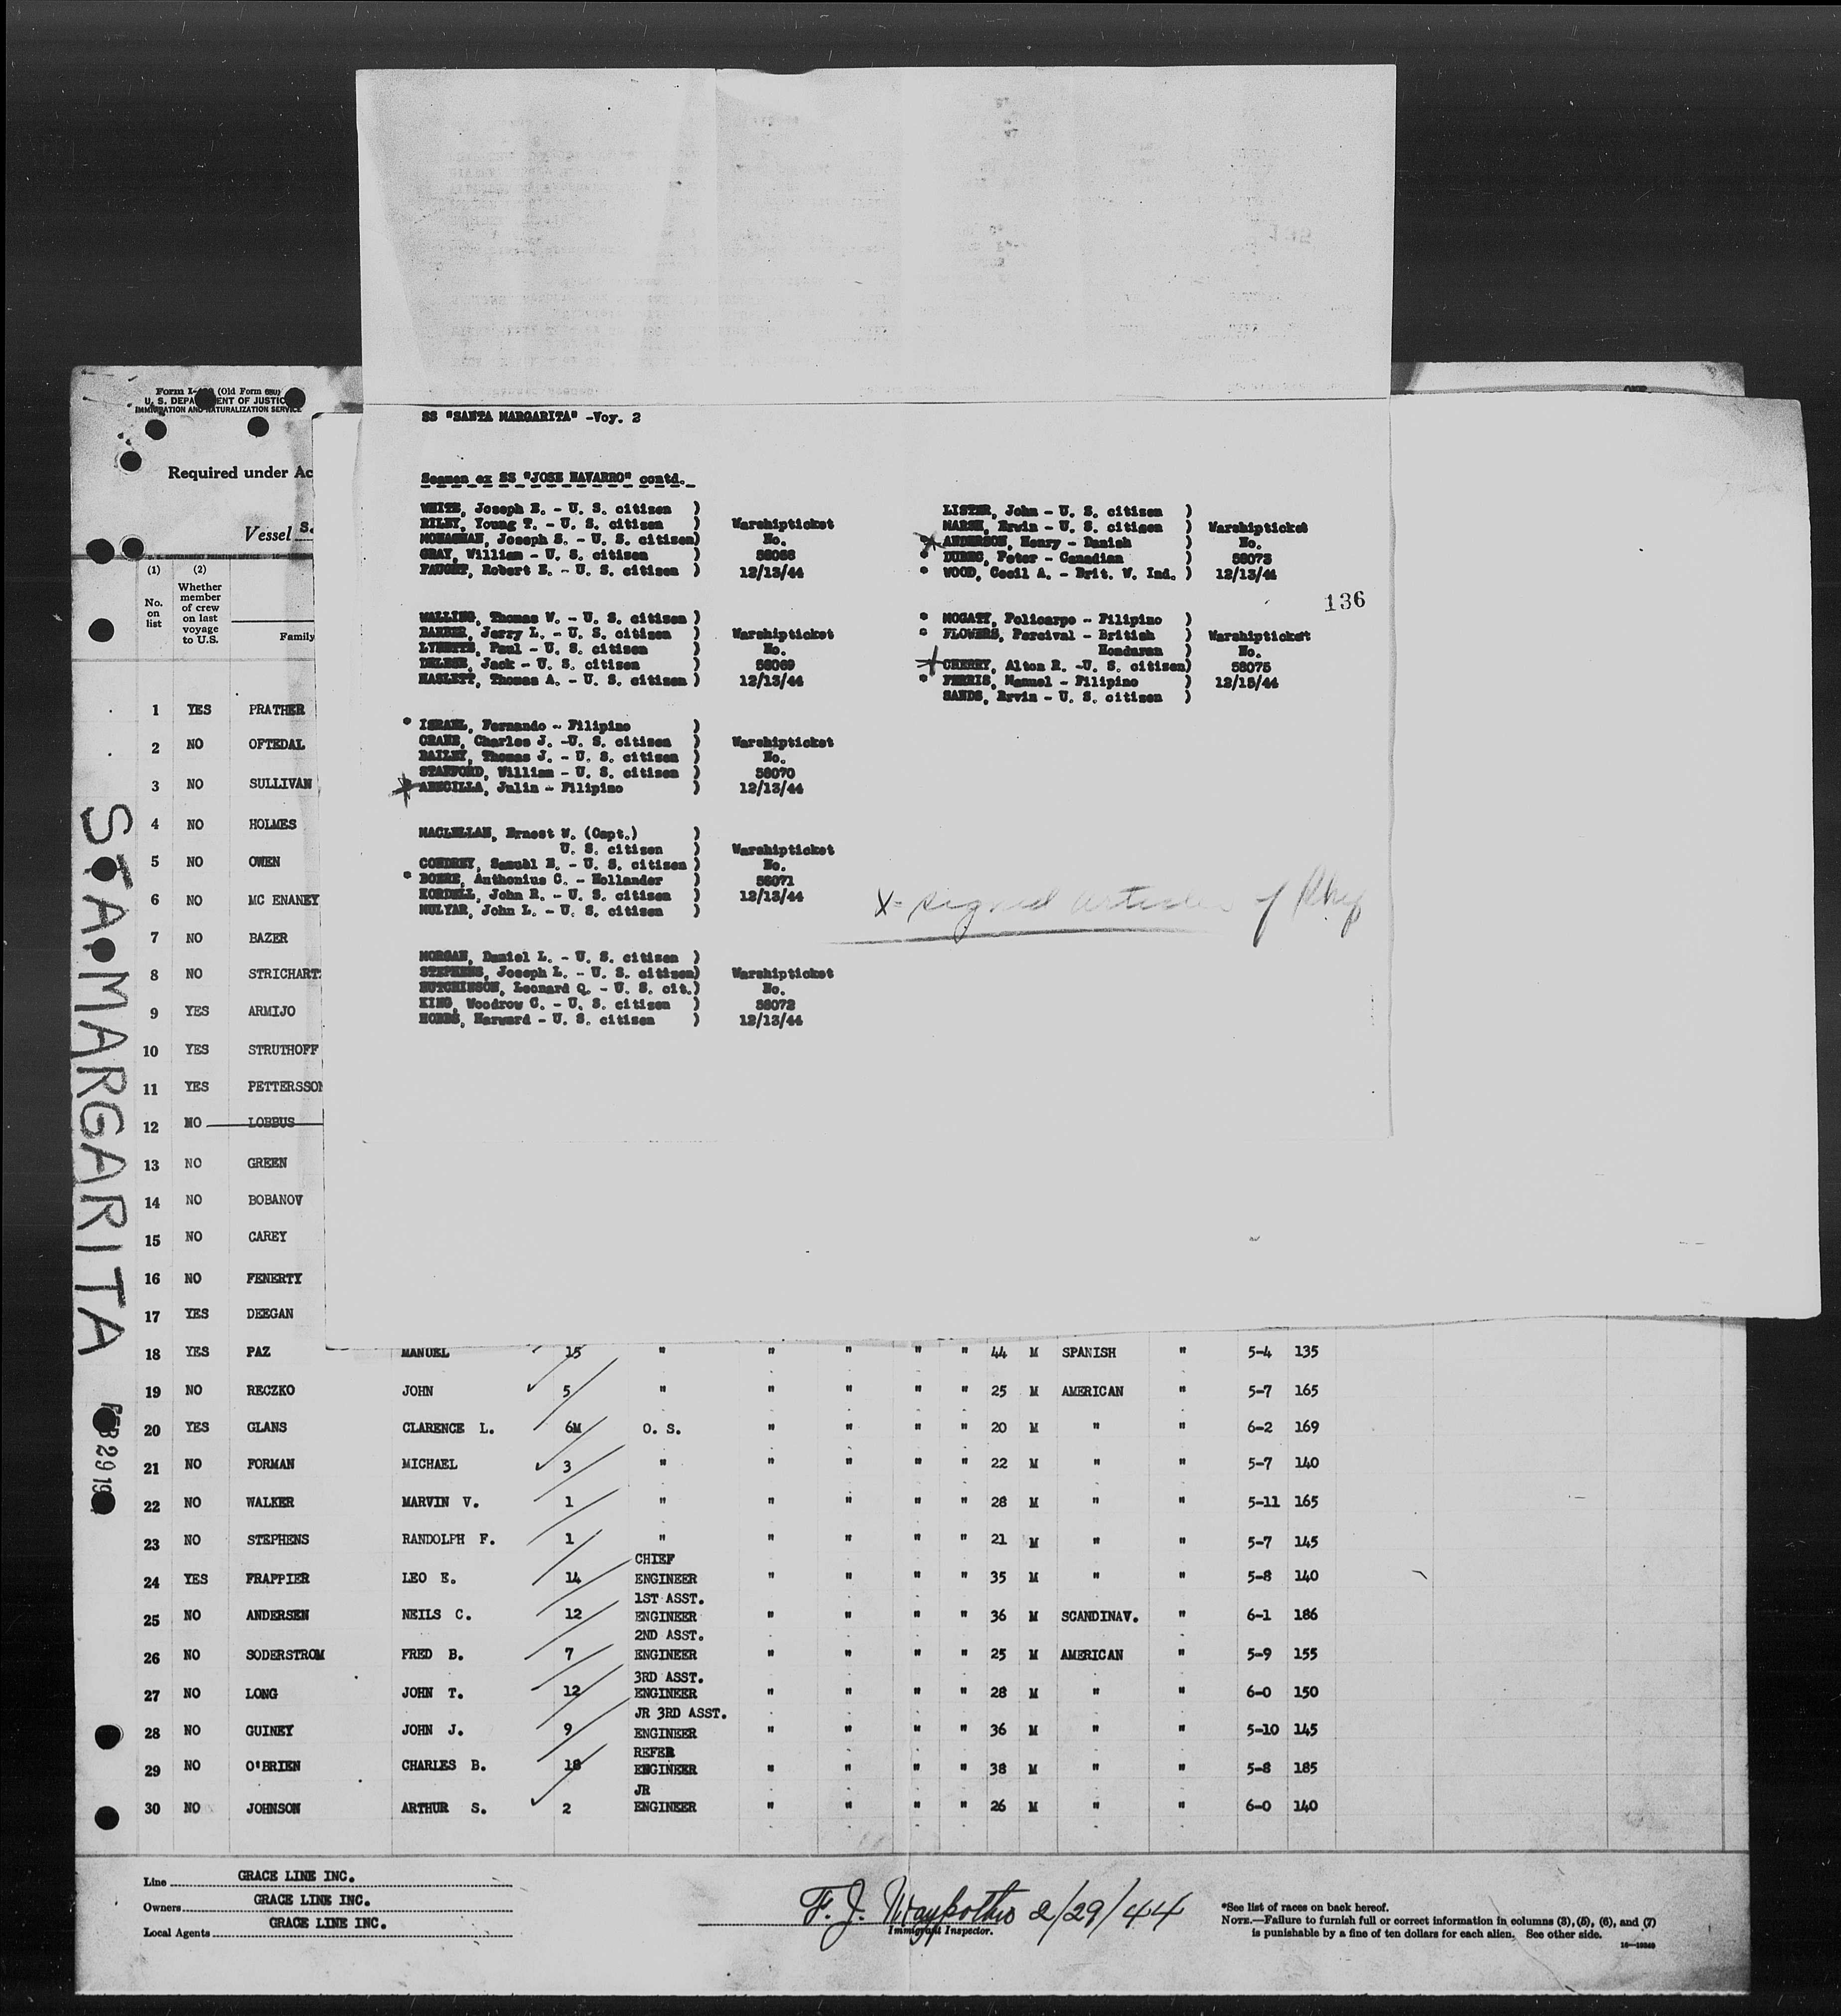 Form I-480 (Old Form 680)
U. S. DEPARTMENT OF JUSTICE
IMMIGRATION AND NATURALIZATION SERVICE
Required under Ac
Vessel S.
(1) (2)
No. on list
Whether member of crew on last voyage to U.S.
Family
SS "SANTA MARGARITA" -Voy. 2
Seamen ex SS "JOSE NAVARRO" contd.
WHITE, Joseph E. - U. S. citizen )
RILEY, Young T. - U. S. citizen ) Warshipticket
MONAGHAN, Joseph S. - U. S. citizen) No.
GRAY, William - U. S. citizen ) 58068
FAUGHT, Robert E. - U. S. citizen ) 12/13/44
WALLING, Thomas W. - U. S. citizen )
BARBER, Jerry L. - U. S. citizen ) Warshipticket
Paul - U. S. citizen ) No.
Jack - U. S. citizen ) 58069
HASLETT, Thomas A. - U. S. citizen ) 12/13/44
* ISRAEL, Fernando - Filipino )
CRANE, Charles J. -U. S. citizen ) Warshipticket
BAILEY, Thomas J. - U. S. citizen ) No.
STAFFORD, William - U. S. citizen ) 58070
* ABECILLA, Julin - Filipino ) 12/13/44
MACLELLAN, Ernest W. (Capt.) )
U. S. citizen ) Warshipticket
Samuel E. - U. S. citizen ) No.
* Anthonius C. - Hollander ) 58071
KORDELL, John R. - U. S. citizen ) 12/13/44
MULYAR, John L. - U. S. citizen )
MORGAN, Daniel L. - U. S. citizen )
STEPHENS, Joseph L. - U. S. citizen) Warshipticket
HUTCHINSON, Leonard Q. - U. S. cit.) No.
KING, Woodrow C. - U. S. citizen ) 58072
HOBBS, Harward - U. S. citizen ) 12/13/44
LISTER, John - U. S. citizen )
MARSH, Erwin - U. S. citizen ) Warshipticket
* ANDERSON, Henry - Danish ) No.
* Peter - Canadian ) 58073
* WOOD, Cecil A. - Brit. W. Ind. ) 12/13/44
136
* MOGATE, Policarpo - Filipino )
* FLOWERS, Percival - British ) Warshipticket
Honduran ) No.
CHERRY, Alton R. -U. S. citizen) 58075
* FERRIS, Manuel - Filipino ) 12/15/44
SANDS, Ervin - U. S. citizen )
X = signed articles of
1 YES PRATHER
2 NO OFTEDAL
3 NO SULLIVAN
4 NO HOLMES
5 NO OWEN
6 NO MC ENANEY
7 NO BAZER
8 NO STRICHART
9 YES ARMIJO
10 YES STRUTHOFF
11 YES PETTERSSON
12 NO LOBBUS
13 NO GREEN
14 NO BOBANOV
15 NO CAREY
16 NO FENERTY
17 YES DEEGAN
18 YES PAZ MANUEL 15 " " " " " 44 M SPANISH " 5-4 135
19 NO RECZKO JOHN 5 " " " " " 25 M AMERICAN " 5-7 165
20 YES GLANS CLARENCE L. 6M O. S. " " " " 20 M " " 6-2 169
21 NO FORMAN MICHAEL 3 " " " " " 22 M " " 5-7 140
22 NO WALKER MARVIN V. 1 " " " " " 28 M " " 5-11 165
23 NO STEPHENS RANDOLPH F. 1 " " " " " 21 M " " 5-7 145
24 YES FRAPPIER LEO E. 14 CHIEF ENGINEER " " " " 35 M " " 5-8 140
25 NO ANDERSEN NEILS C. 12 1ST ASST. ENGINEER " " " " 36 M SCANDINAV. " 6-1 186
26 NO SODERSTROM FRED B. 7 2ND ASST. ENGINEER " " " " 25 M AMERICAN " 5-9 155
27 NO LONG JOHN T. 12 3RD ASST. ENGINEER " " " " 28 M " " 6-0 150
28 NO GUINEY JOHN J. 9 JR 3RD ASST. ENGINEER " " " " 36 M " " 5-10 145
29 NO O'BRIEN CHARLES B. 18 REFER ENGINEER " " " " 38 M " " 5-8 185
30 NO JOHNSON ARTHUR S. 2 JR ENGINEER " " " " 26 M " " 6-0 140
STA. MARGARITA
FEB 29 19
Line GRACE LINE INC.
Owners GRACE LINE INC.
Local Agents GRACE LINE INC.
F. J. 2/29/44
Immigrant Inspector.
*See list of races on back hereof.
NOTE.—Failure to furnish full or correct information in columns (3), (5), (6), and (7)
is punishable by a fine of ten dollars for each alien. See other side.